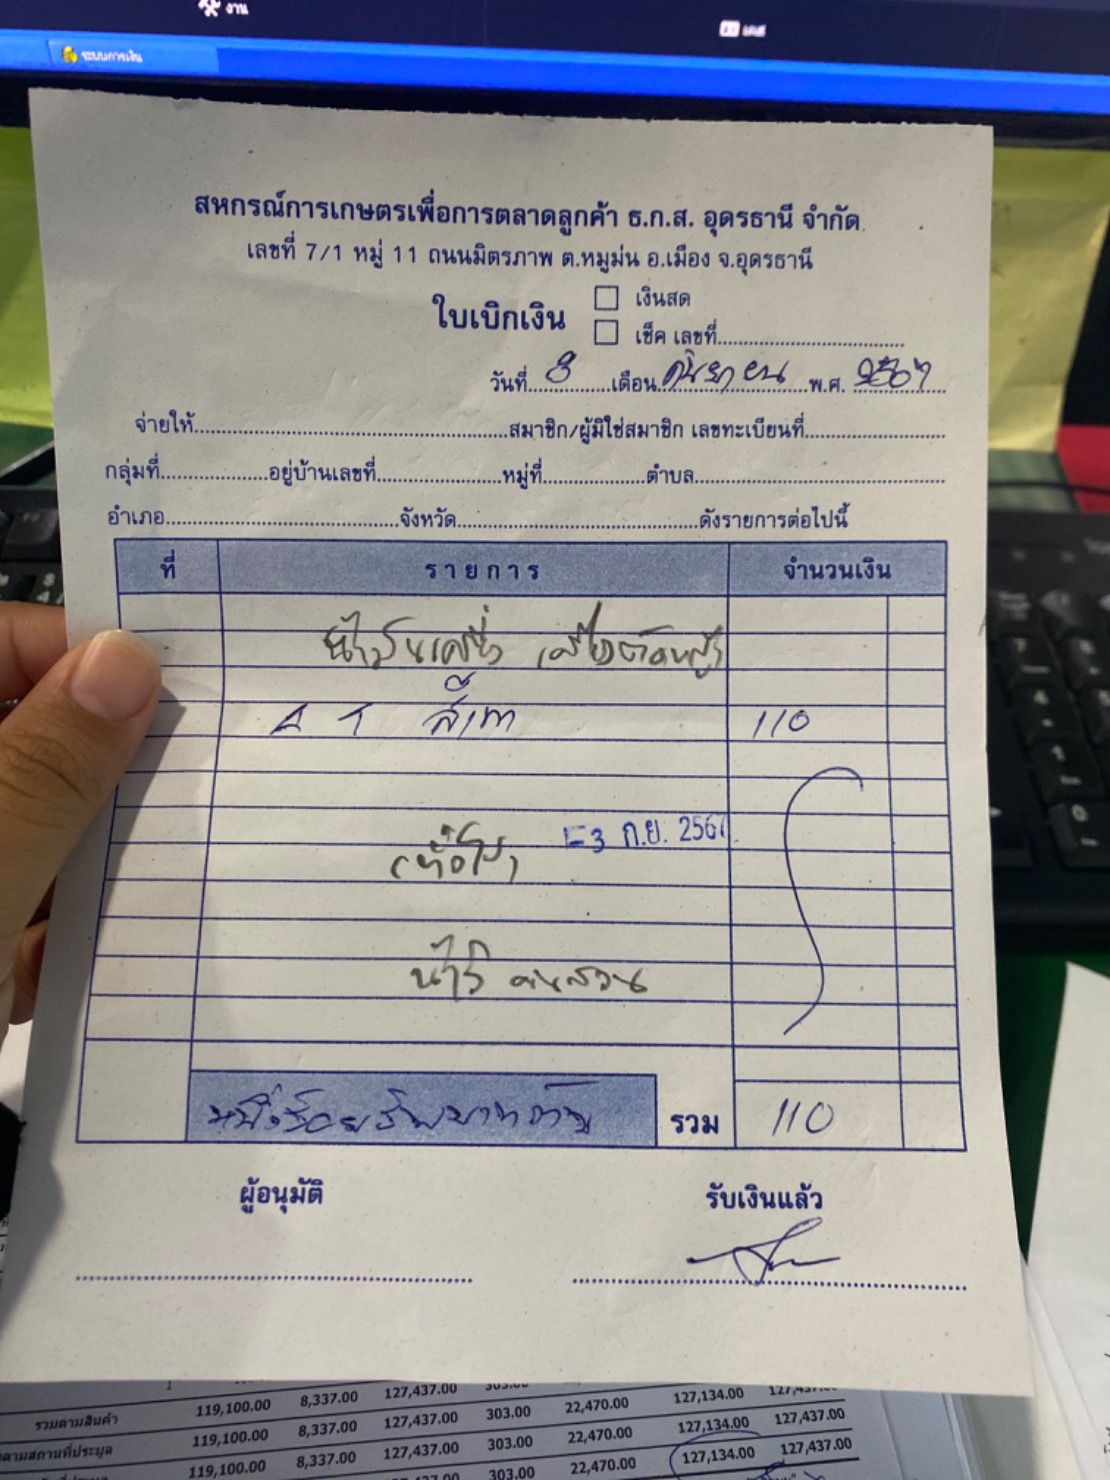 งาน
เคส
ระบบการเงิน
สหกรณ์การเกษตรเพื่อการตลาดลูกค้า ธ.ก.ส. อุดรธานี จำกัด
เลขที่ 7/1 หมู่ 11 ถนนมิตรภาพ ต.หมูม่น อ.เมือง จ.อุดรธานี
ใบเบิกเงิน
เงินสด
เช็ค เลขที่
วันที่ 3 เดือน กันยายน พ.ศ. 2567
จ่ายให้ สมาชิก/ผู้มิใช่สมาชิก เลขทะเบียนที่
กลุ่มที่ อยู่บ้านเลขที่ หมู่ที่ ตำบล
อำเภอ จังหวัด ดังรายการต่อไปนี้
ที่ รายการ จำนวนเงิน
น้ำมันเครื่อง ตัดหญ้า
110
-3 ก.ย. 2567
คนสวน
หนึ่งร้อยสิบบาทถ้วน รวม 110
ผู้อนุมัติ รับเงินแล้ว
รวมตามสินค้า 119,100.00 8,337.00 127,437.00 303.00 22,470.00 127,134.00 127,437.00
ตามสถานที่ประมูล 119,100.00 8,337.00 127,437.00 303.00 22,470.00 127,134.00 127,437.00
119,100.00 8,337.00 127,437.00 303.00 22,470.00 127,134.00 127,437.00